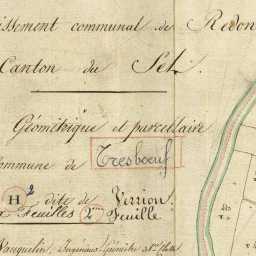 issement communal de Redon
Canton du Sel.
Géométrique et parcellaire
Commune de Tresboeuf
H2 dite de Verrion.
Feuilles 2me Feuille
Vauquelin, Ingénieur Géomètre